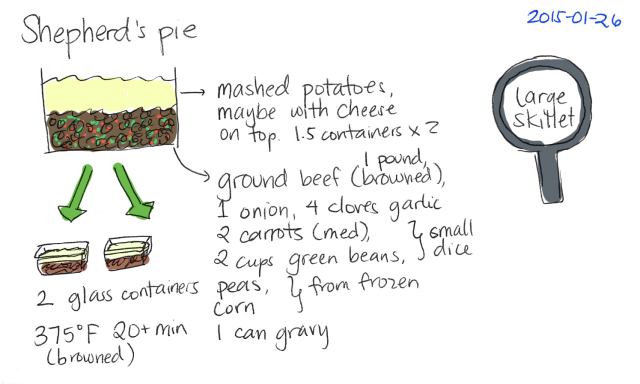 2015-01-26
Shepherd's pie
large
skillet
mashed potatoes,
maybe with cheese
on top. 1.5 containers x 2
1 pound,
ground beef (browned),
1 onion, 4 cloves garlic
2 carrots (med),
2 cups green beans,
small
dice
peas,
corn
from frozen
1 can gravy
2 glass containers
375°F 20+ min
(browned)